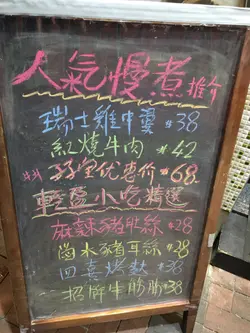 人氣慢煮推介
瑞士雞中翼 $38
紅燒牛肉 $42
孖宝优惠价 $68
輕盈小吃精選
麻辣豬肚絲 $28
鹵水豬耳絲 $28
四喜烤麩 $38
招牌牛𦟌 $38